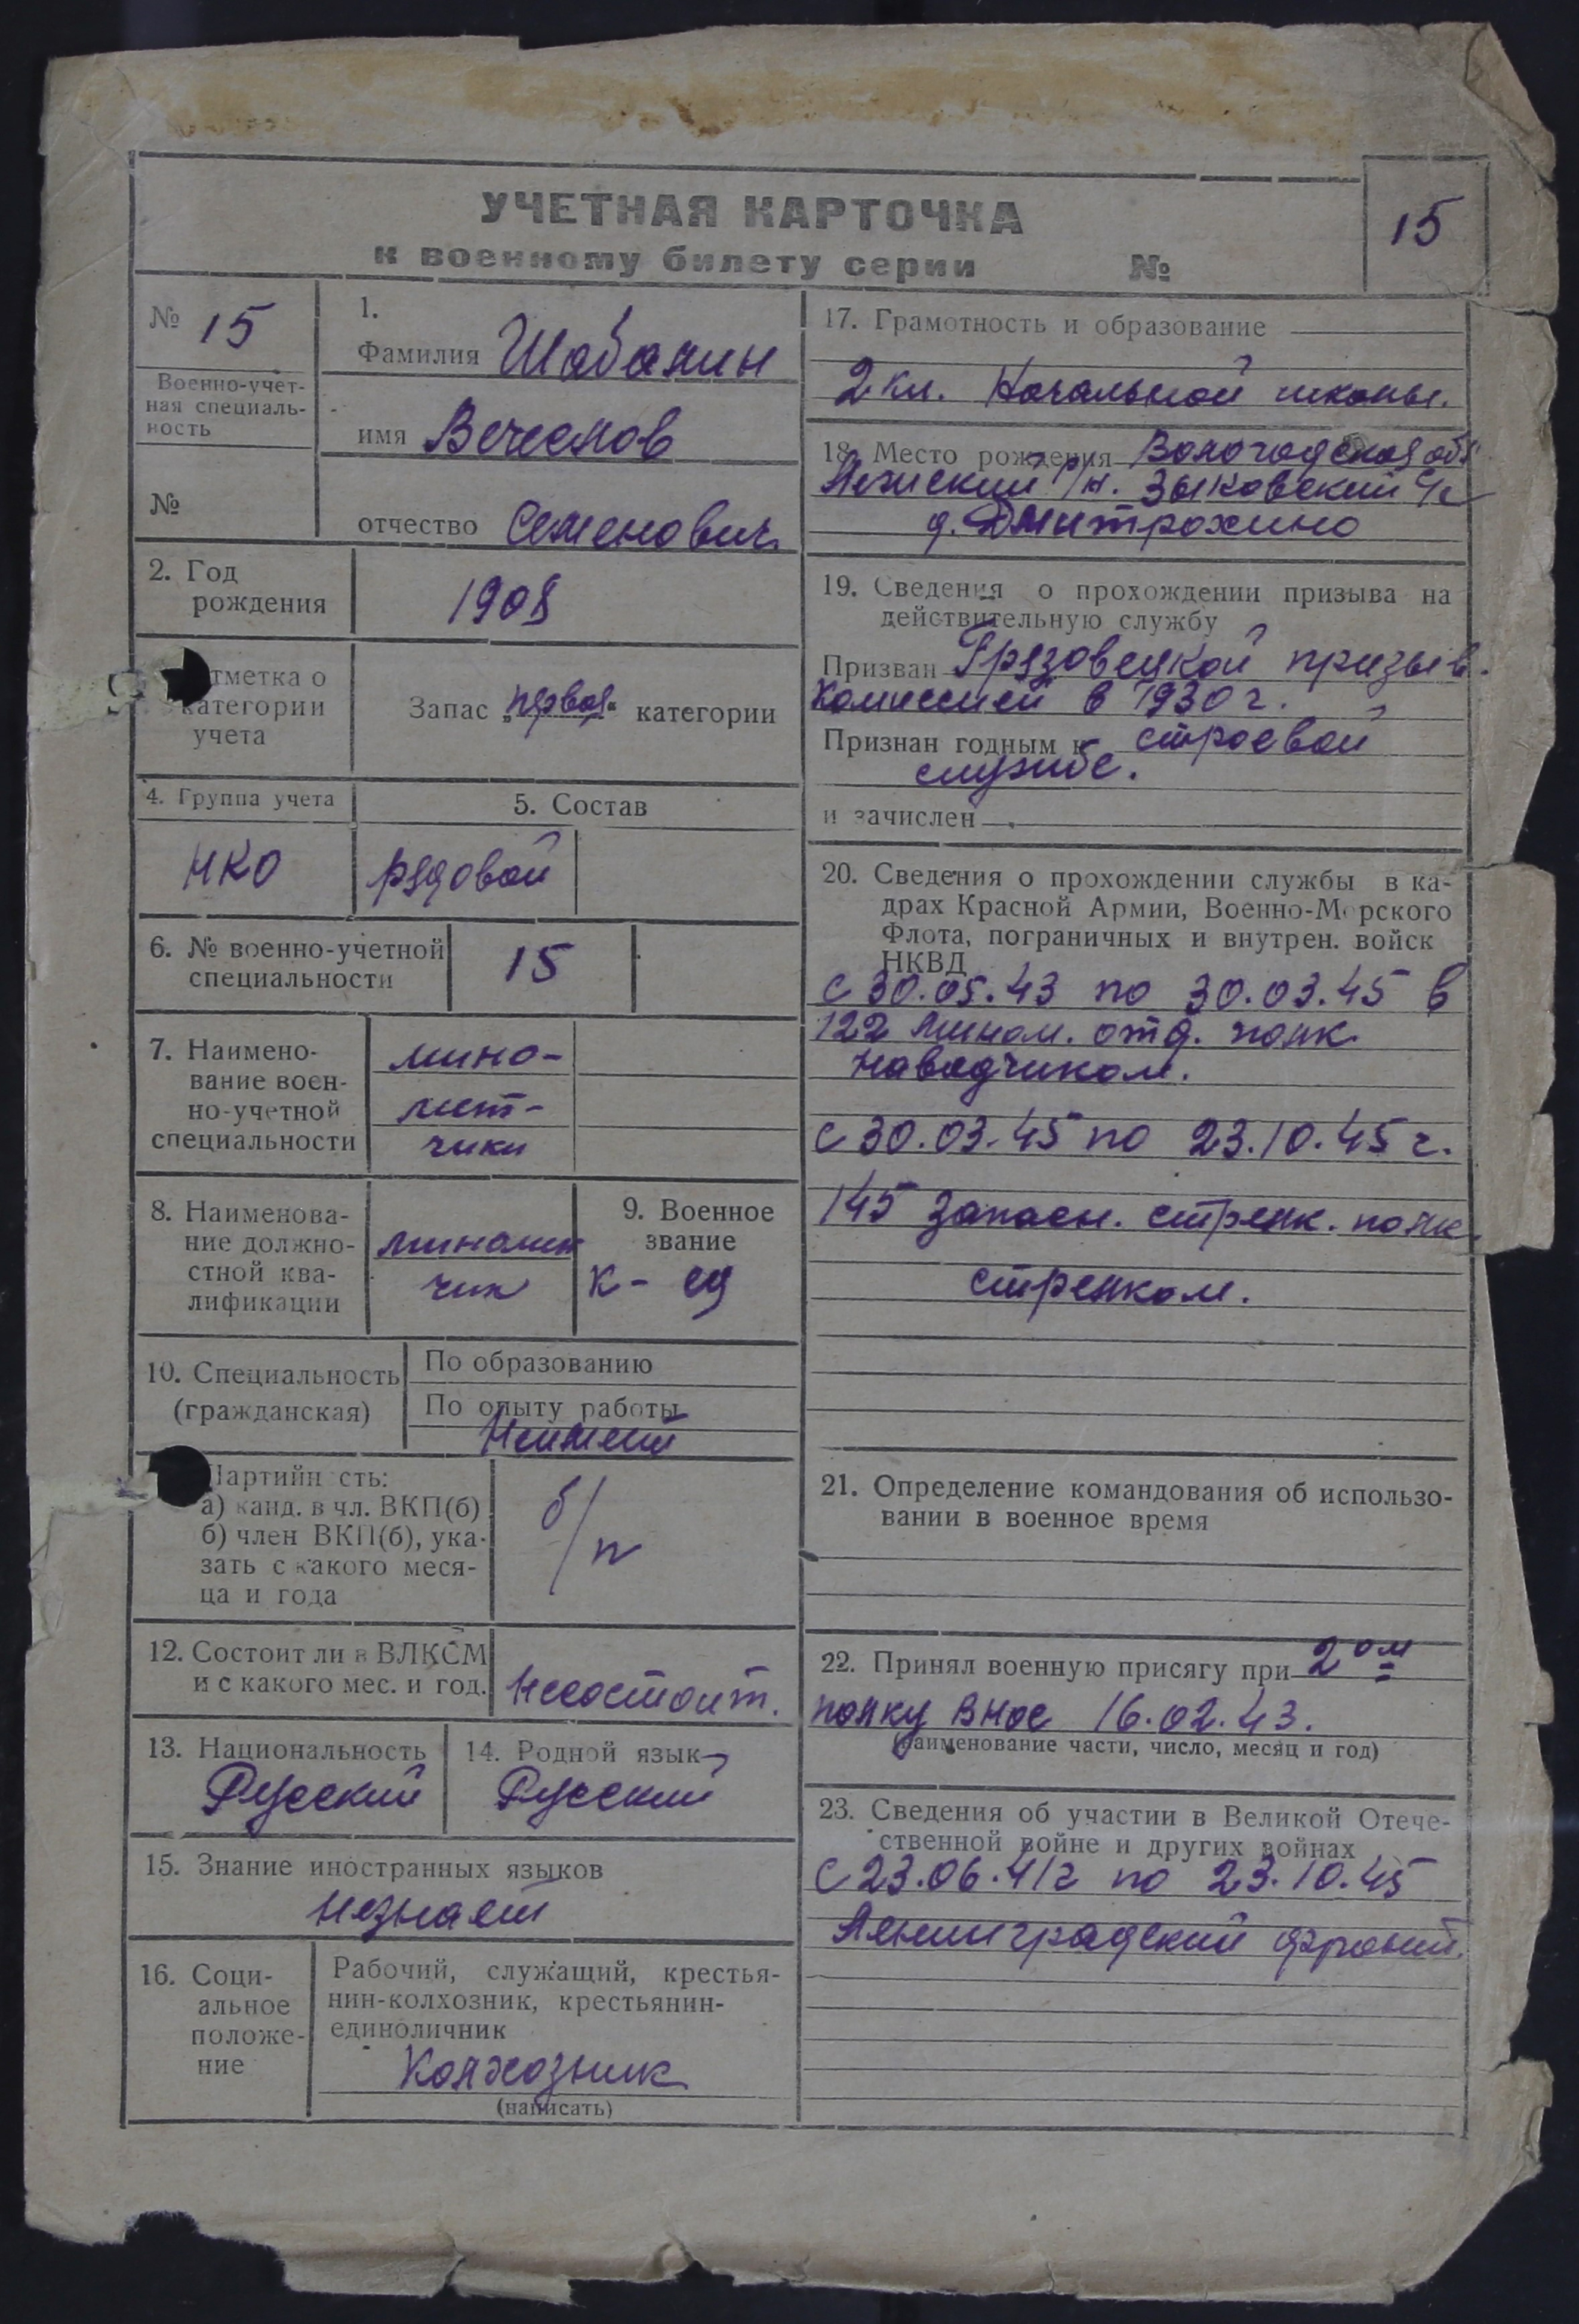 УЧЕТНАЯ КАРТОЧКА
к военному билету серии №
15
№ 15
Военно-учет-
ная специаль-
ность
№
1.
Фамилия Шабанин
имя Вячеслов
отчество Семенович
2. Год
рождения
1908
тметка о
категории
учета
Запас „первая“ категории
4. Группа учета
НКО
5. Состав
рядовой
6. № военно-учетной
специальности
15
7. Наимено-
вание воен-
но-учетной
специальности
мино-
мет-
чики
8. Наименова-
ние должно-
стной ква-
лификации
миномет
чик
9. Военное
звание
к-ец
10. Специальность
(гражданская)
По образованию
По опыту работы
Неимеет
Партийн сть:
а) канд. в чл. ВКП(б)
б) член ВКП(б), ука-
зать с какого меся-
ца и года
б/п
12. Состоит ли в ВЛКСМ
и с какого мес. и год.
Несостоит.
13. Национальность
Русский
14. Родной язык
Русский
15. Знание иностранных языков
незнает
16. Соци-
альное
положе-
ние
Рабочий, служащий, крестья-
нин-колхозник, крестьянин-
единоличник
Колхозник
(написать)
17. Грамотность и образование
2 кл. Начальной школы.
18. Место рождения Вологодская обл
р/н. Зыковский с/с
д. Дмитрохино
19. Сведения о прохождении призыва на
действительную службу
Призван Грязовецкой призыв.
комиссией в 1930 г.
Признан годным к строевой
службе.
и зачислен
20. Сведения о прохождении службы в ка-
драх Красной Армии, Военно-Морского
Флота, пограничных и внутрен. войск
НКВД
с 30.05.43 по 30.03.45 в
122 мином. отд. полк
наводчиком.
с 30.03.45 по 23.10.45 г.
145 запасн. стрелк. полк
стрелком.
21. Определение командования об использо-
вании в военное время
22. Принял военную присягу при 2ом
полку внос 16.02.43.
(наименование части, число, месяц и год)
23. Сведения об участии в Великой Отече-
ственной войне и других войнах
с 23.06.41г по 23.10.45
Ленинградский фронт.